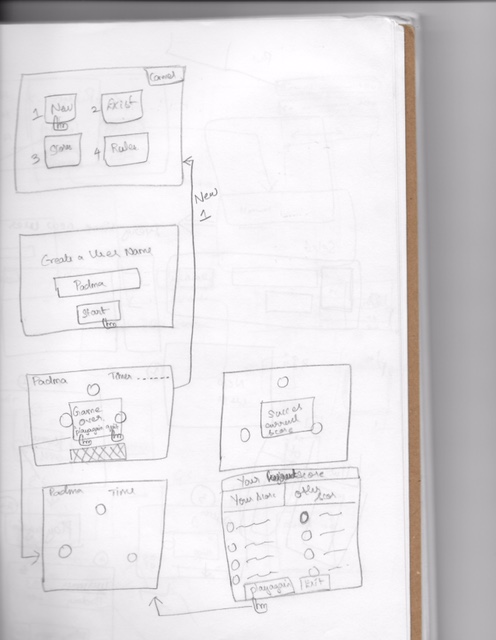 Cancel
1 New 2 Exist
3 Score 4 Rules
New
1
Create a User Name
Padma
Start
Padma Timer
Game
over
playagain quit
Success
current
score
Padma Time
Your Score
Your Score Other
Scor
Playagain Exit